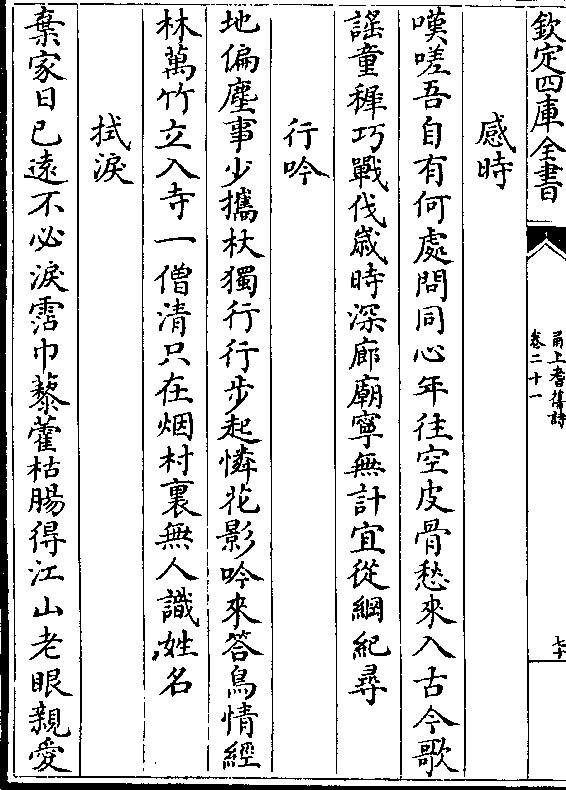 欽定四庫全書
甬上耆舊詩
卷二十一
七十
感時
嘆嗟吾自有何處問同心年往空皮骨愁來入古今歌
謡童穉巧戰伐嵗時深廊廟寧無計宜從綱紀尋
行吟
地偏塵事少攜杖獨行行步起憐花影吟來答鳥情經
林萬竹立入寺一僧清只在烟村裏無人識姓名
拭淚
棄家日已遠不必淚霑巾藜藿枯腸得江山老眼親愛